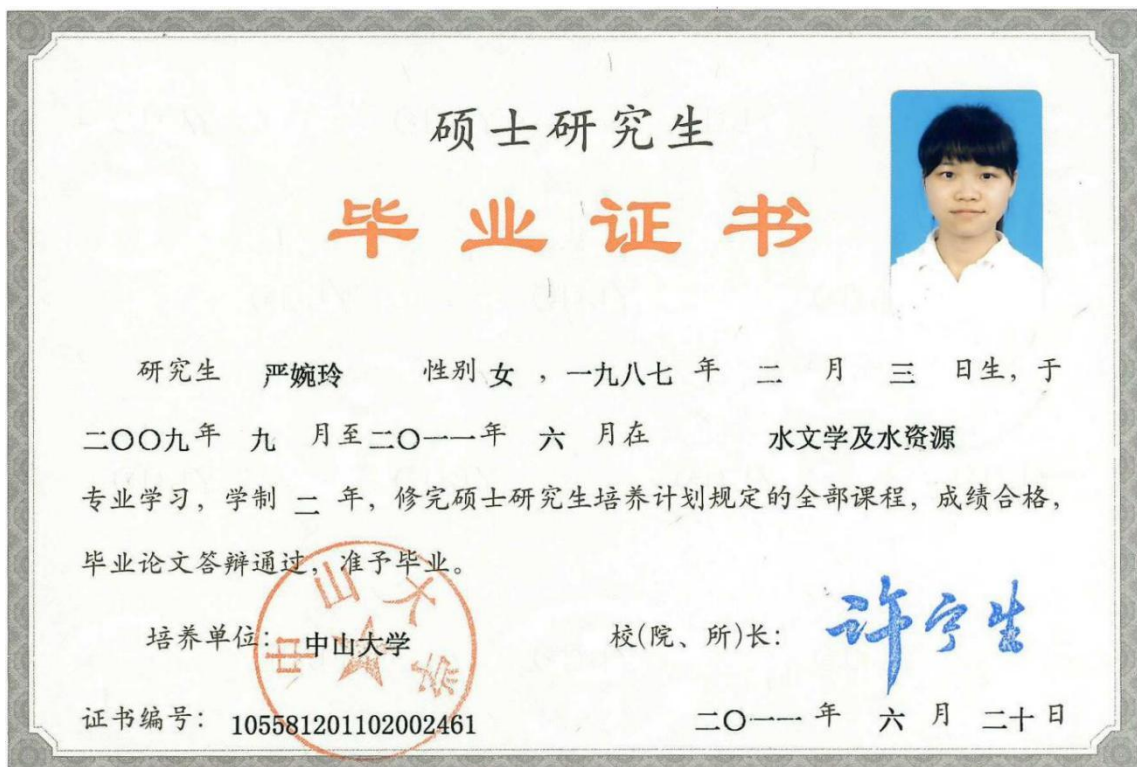 硕士研究生
毕业证书
研究生 严婉玲 性别 女 , 一九八七 年 二 月 三 日生, 于
二〇〇九年 九 月至二〇一一年 六 月在 水文学及水资源
专业学习, 学制 二 年, 修完硕士研究生培养计划规定的全部课程, 成绩合格,
毕业论文答辩通过, 准予毕业。
培养单位: 中山大学 校(院、所)长: 许宁生
中山大学
证书编号: 105581201102002461 二〇一一 年 六 月 二十 日